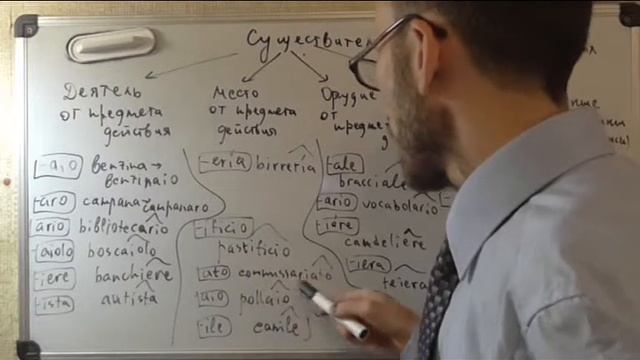 Существител
Деятель
от предмета
действия
-aio benzina →
benzinaio
-aro campana campanaro
ario bibliotecario
aiolo boscaiolo
iere banchiere
ista autista
Место
от предмета
действия
-eria birreria
ificio
pastificio
ato commissariato
aio pollaio
ile canile
Орудие
от
предме
-ale
bracciale
ario vocabolario
iere
candeliere
iera
teiera